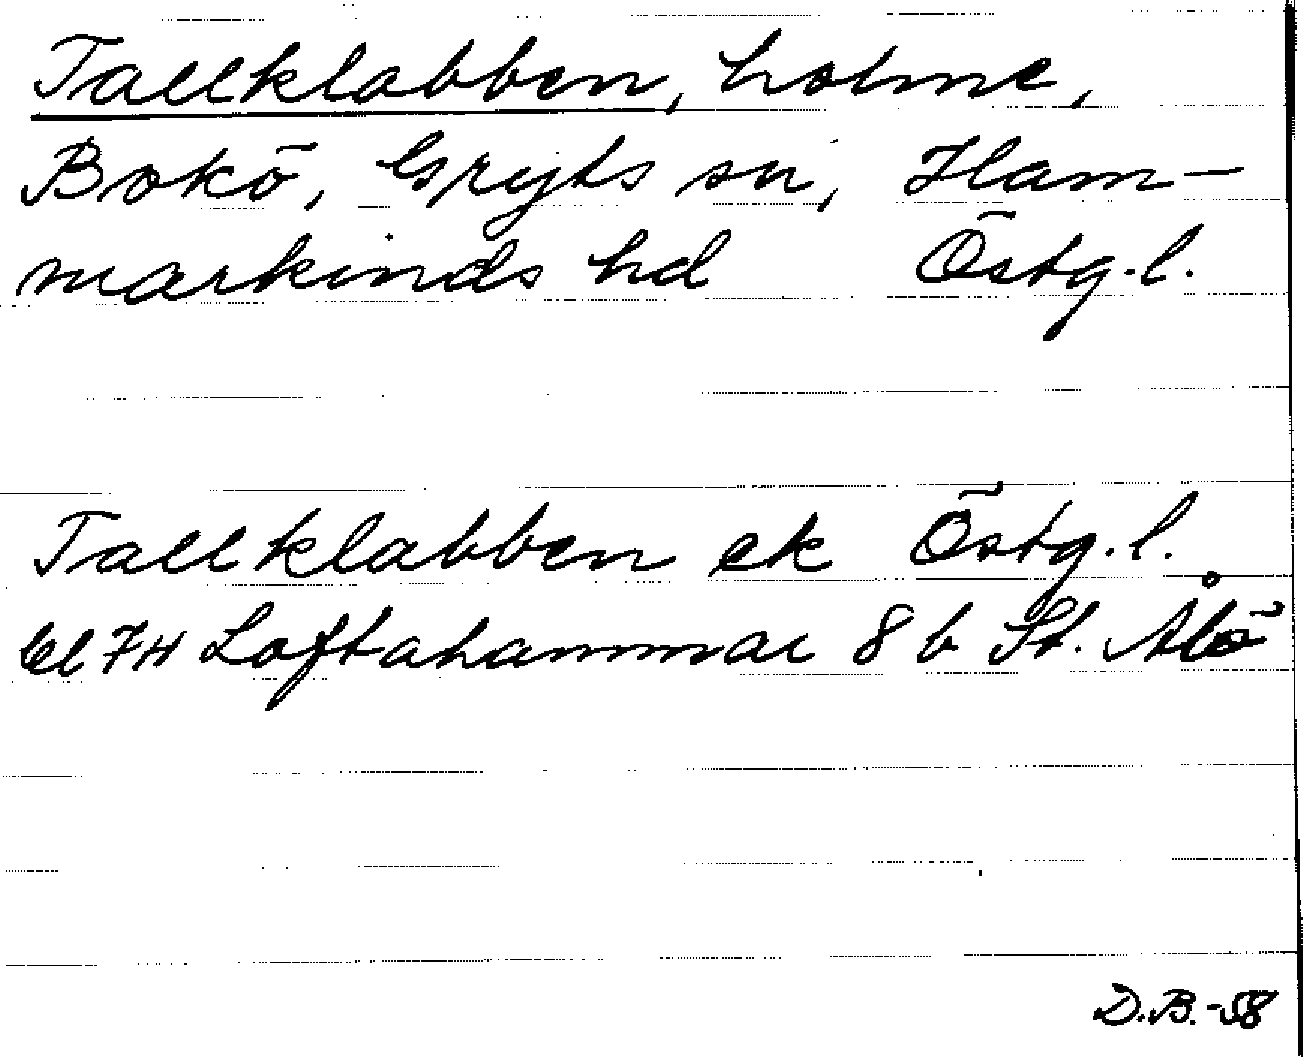 Tallklabben, holme,
Bokö, Gryts sn, Ham-
markinds hd Östg.l.
Tallklabben ek Östg.l.
bl 7H Loftahammar 8 b St. Ålö
D.B.-58